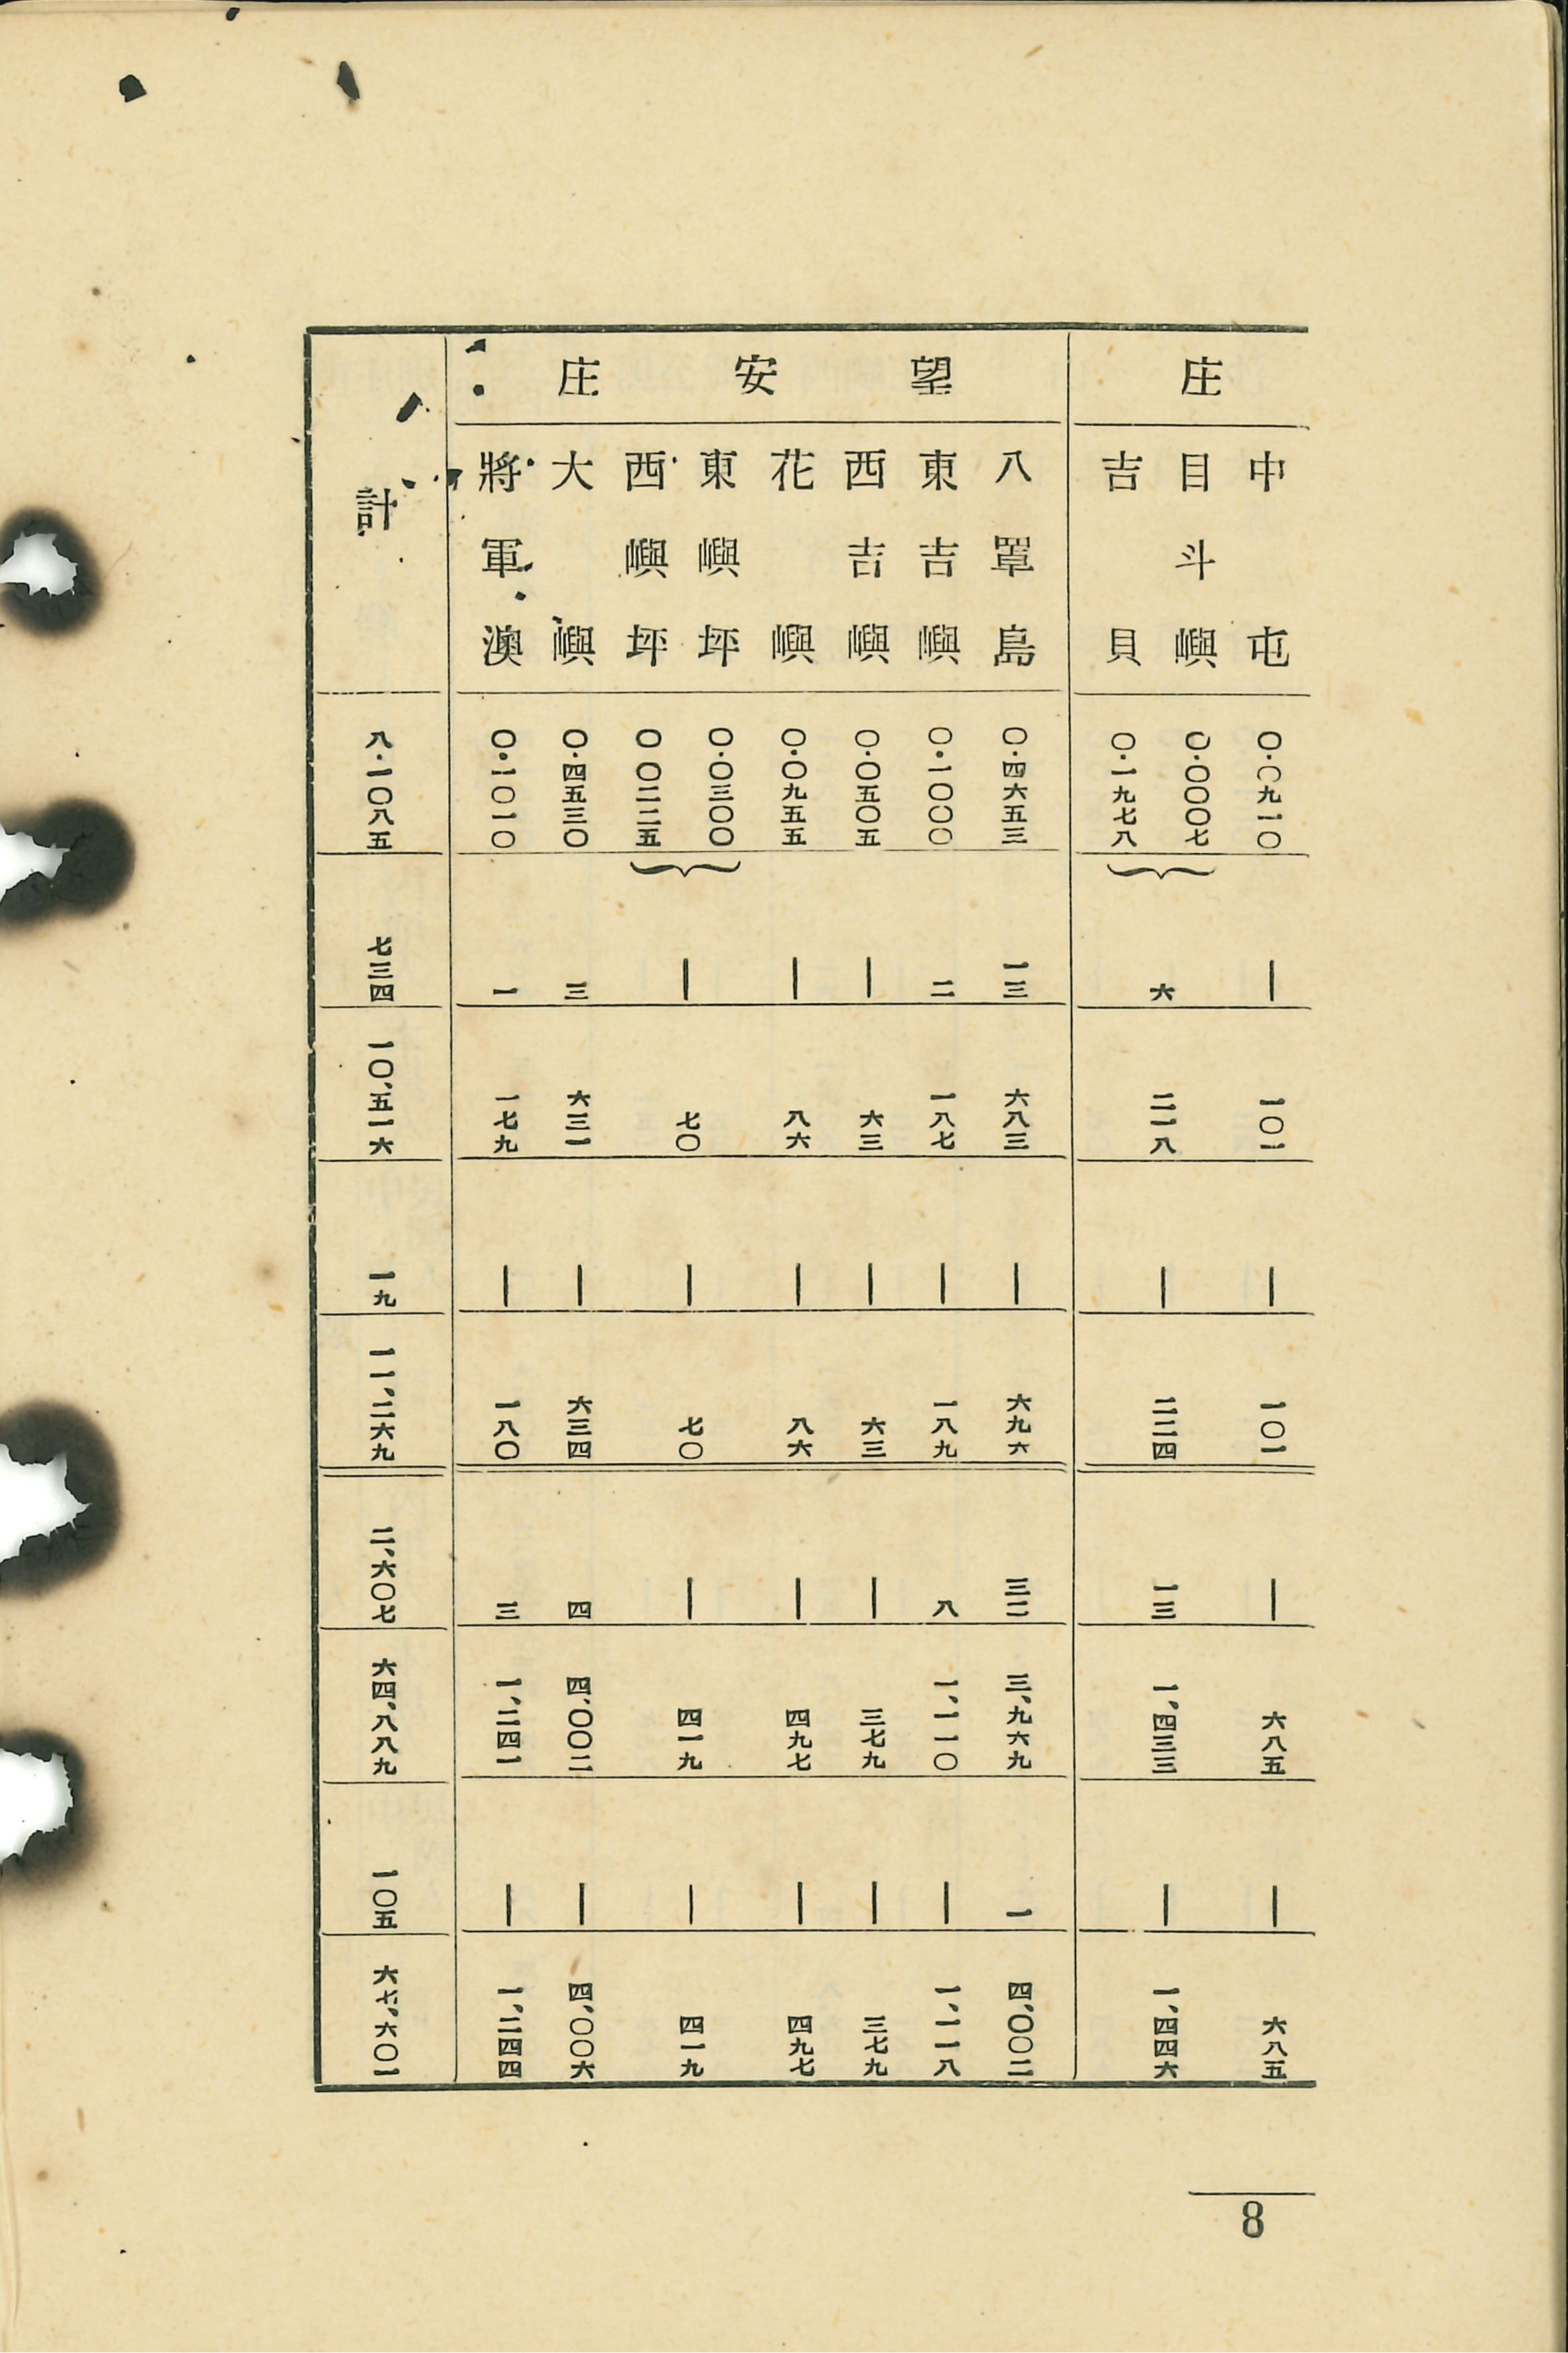 庄
中屯 〇・〇九一〇 ｜ 一〇一 ｜ 一〇一 ｜ 六八五 ｜ 六八五
目斗嶼 〇・〇〇〇七
吉貝 〇・一九七八 六 二一八 ｜ 二二四 一三 一、四三三 ｜ 一、四四六
望安庄
八罩島 〇・四六五三 一三 六八三 ｜ 六九六 三二 三、九六九 一 四、〇〇二
東吉嶼 〇・一〇〇〇 二 一八七 ｜ 一八九 八 一、一一〇 ｜ 一、一一八
西吉嶼 〇・〇五〇五 ｜ 六三 ｜ 六三 ｜ 三七九 ｜ 三七九
花嶼 〇・〇九五五 ｜ 八六 ｜ 八六 ｜ 四九七 ｜ 四九七
東嶼坪 〇・〇三〇〇 ｜ 七〇 ｜ 七〇 ｜ 四一九 ｜ 四一九
西嶼坪 〇 〇二二五
大嶼 〇・四五三〇 三 六三一 ｜ 六三四 四 四、〇〇二 ｜ 四、〇〇六
將軍澳 〇・一〇一〇 一 一七九 ｜ 一八〇 三 一、二四一 ｜ 一、二四四
計 八・一〇八五 七三四 一〇、五一六 一九 一一、二六九 二、六〇七 六四、八八九 一〇五 六七、六〇一
8